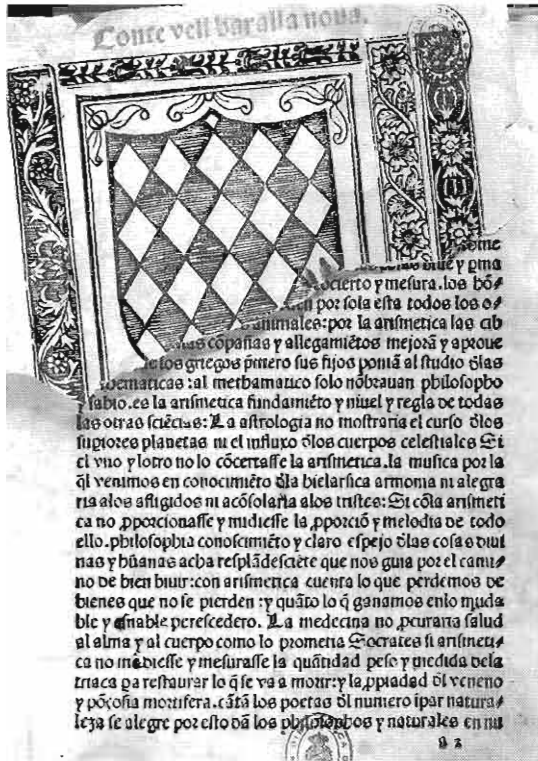 Conte vell baralla nova.
y pma
cierto y mesura. los bō⸗
por sola esta todos los o⸗
animales: por la arismetica las cib
cōpañas y allegamiētos mejorā y aproue
los griegos pmero sus fijos poniā al studio dlas
thematicas: al methamatico solo nōbrauan philosopho
y sabio. es la arismetica fundamiēto y niuel y regla de todas
las otras sciēcias: La astrologia no mostraria el curso dlos
supiores planetas ni el influxo dlos cuerpos celestiales Si
el vno y lotro no lo cōcertasse la arismetica. la musica por la
ql venimos en conocimiēto dla armonia ni alegra
ria alos afligidos ni acōsolaria alos tristes: Si cōla arismeti
ca no pporcionasse y midiesse la pporciō y melodia de todo
ello. philosophia conoscimiēto y claro espejo dlas cosas diui
nas y hūanas acha resplādesciēte que nos guia por el cami⸗
no de bien biuir: con arismetica cuenta lo que perdemos de
bienes que no se pierden: y quāto lo q ganamos enlo muda
ble y perescedero. La medecina no pcuraria salud
al alma y al cuerpo como lo prometia Socrates si arismeti⸗
ca no midiesse y mesurasse la quātidad peso y medida dela
triaca pa restaurar lo q se va a morir: y la ppiadad dl veneno
y pōçoña mortifera. cātā los poetas dl numero ipar natura⸗
leza se alegre por esto dā los philosophos y naturales en nu
a 2